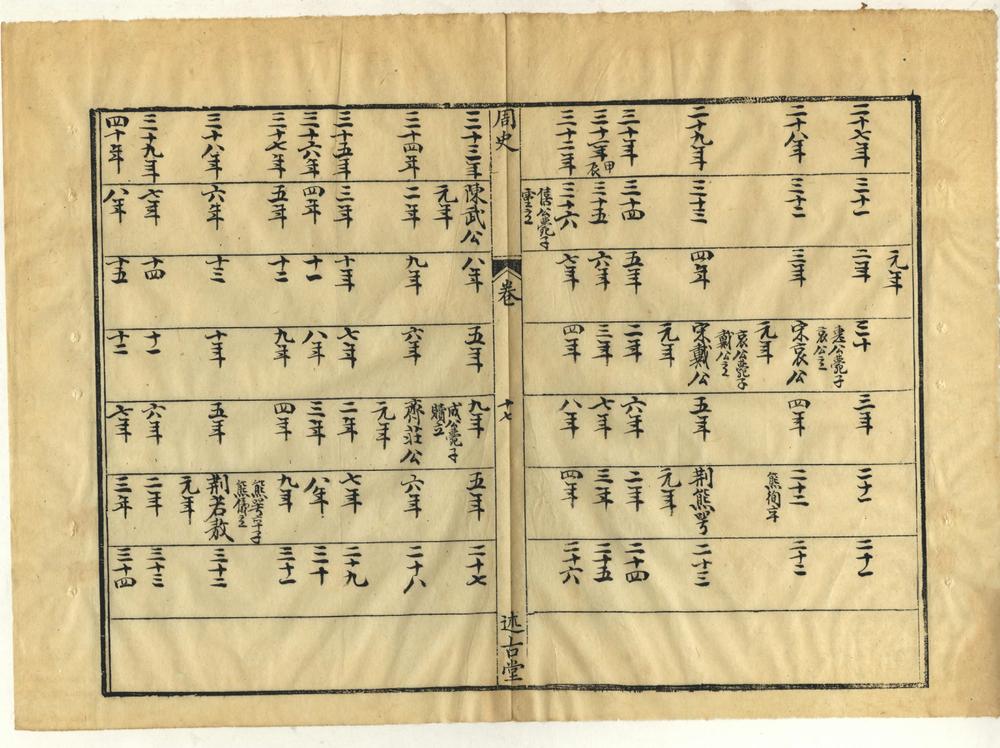 元年
二十七年 三十一 二年 三十 三年 二十一 二十一
惠公薨子
哀公立
二十八年 三十二 三年 宋哀公 四年 二十二 二十二
元年 熊徇卒
哀公薨子
戴公立
二十九年 三十三 四年 宋戴公 五年 荆熊咢 二十三
元年 元年
三十年 三十四 五年 二年 六年 二年 二十四
三十一年 甲辰 三十五 六年 三年 七年 三年 二十五
三十二年 三十六 七年 四年 八年 四年 二十六
僖公薨子
靈立
周史 卷 十七 述古堂
三十三年 陳武公 八年 五年 九年 五年 二十七
元年
成公薨子
贖立
三十四年 二年 九年 六年 齊莊公 六年 二十八
元年
三十五年 三年 十年 七年 二年 七年 二十九
三十六年 四年 十一 八年 三年 八年 三十
三十七年 五年 十二 九年 四年 九年 三十一
熊咢卒子
熊儀立
三十八年 六年 十三 十年 五年 荆若敖 三十二
元年
三十九年 七年 十四 十一 六年 二年 三十三
四十年 八年 十五 十二 七年 三年 三十四